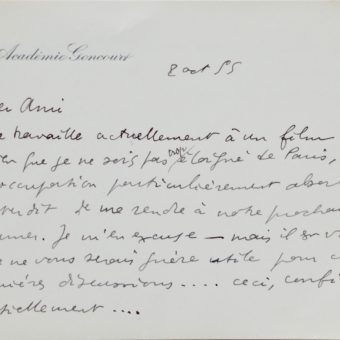 Académie Goncourt
2 oct 55
er Ami
e travaille actuellement à un film
en que je ne sois pas trop éloigné de Paris,
occupation particulièrement absor
terdit de me rendre à notre prochai
uner. Je m'en excuse — mais il se
e ne vous serais guère utile pour
nières discussions.... ceci, confi
tiellement....